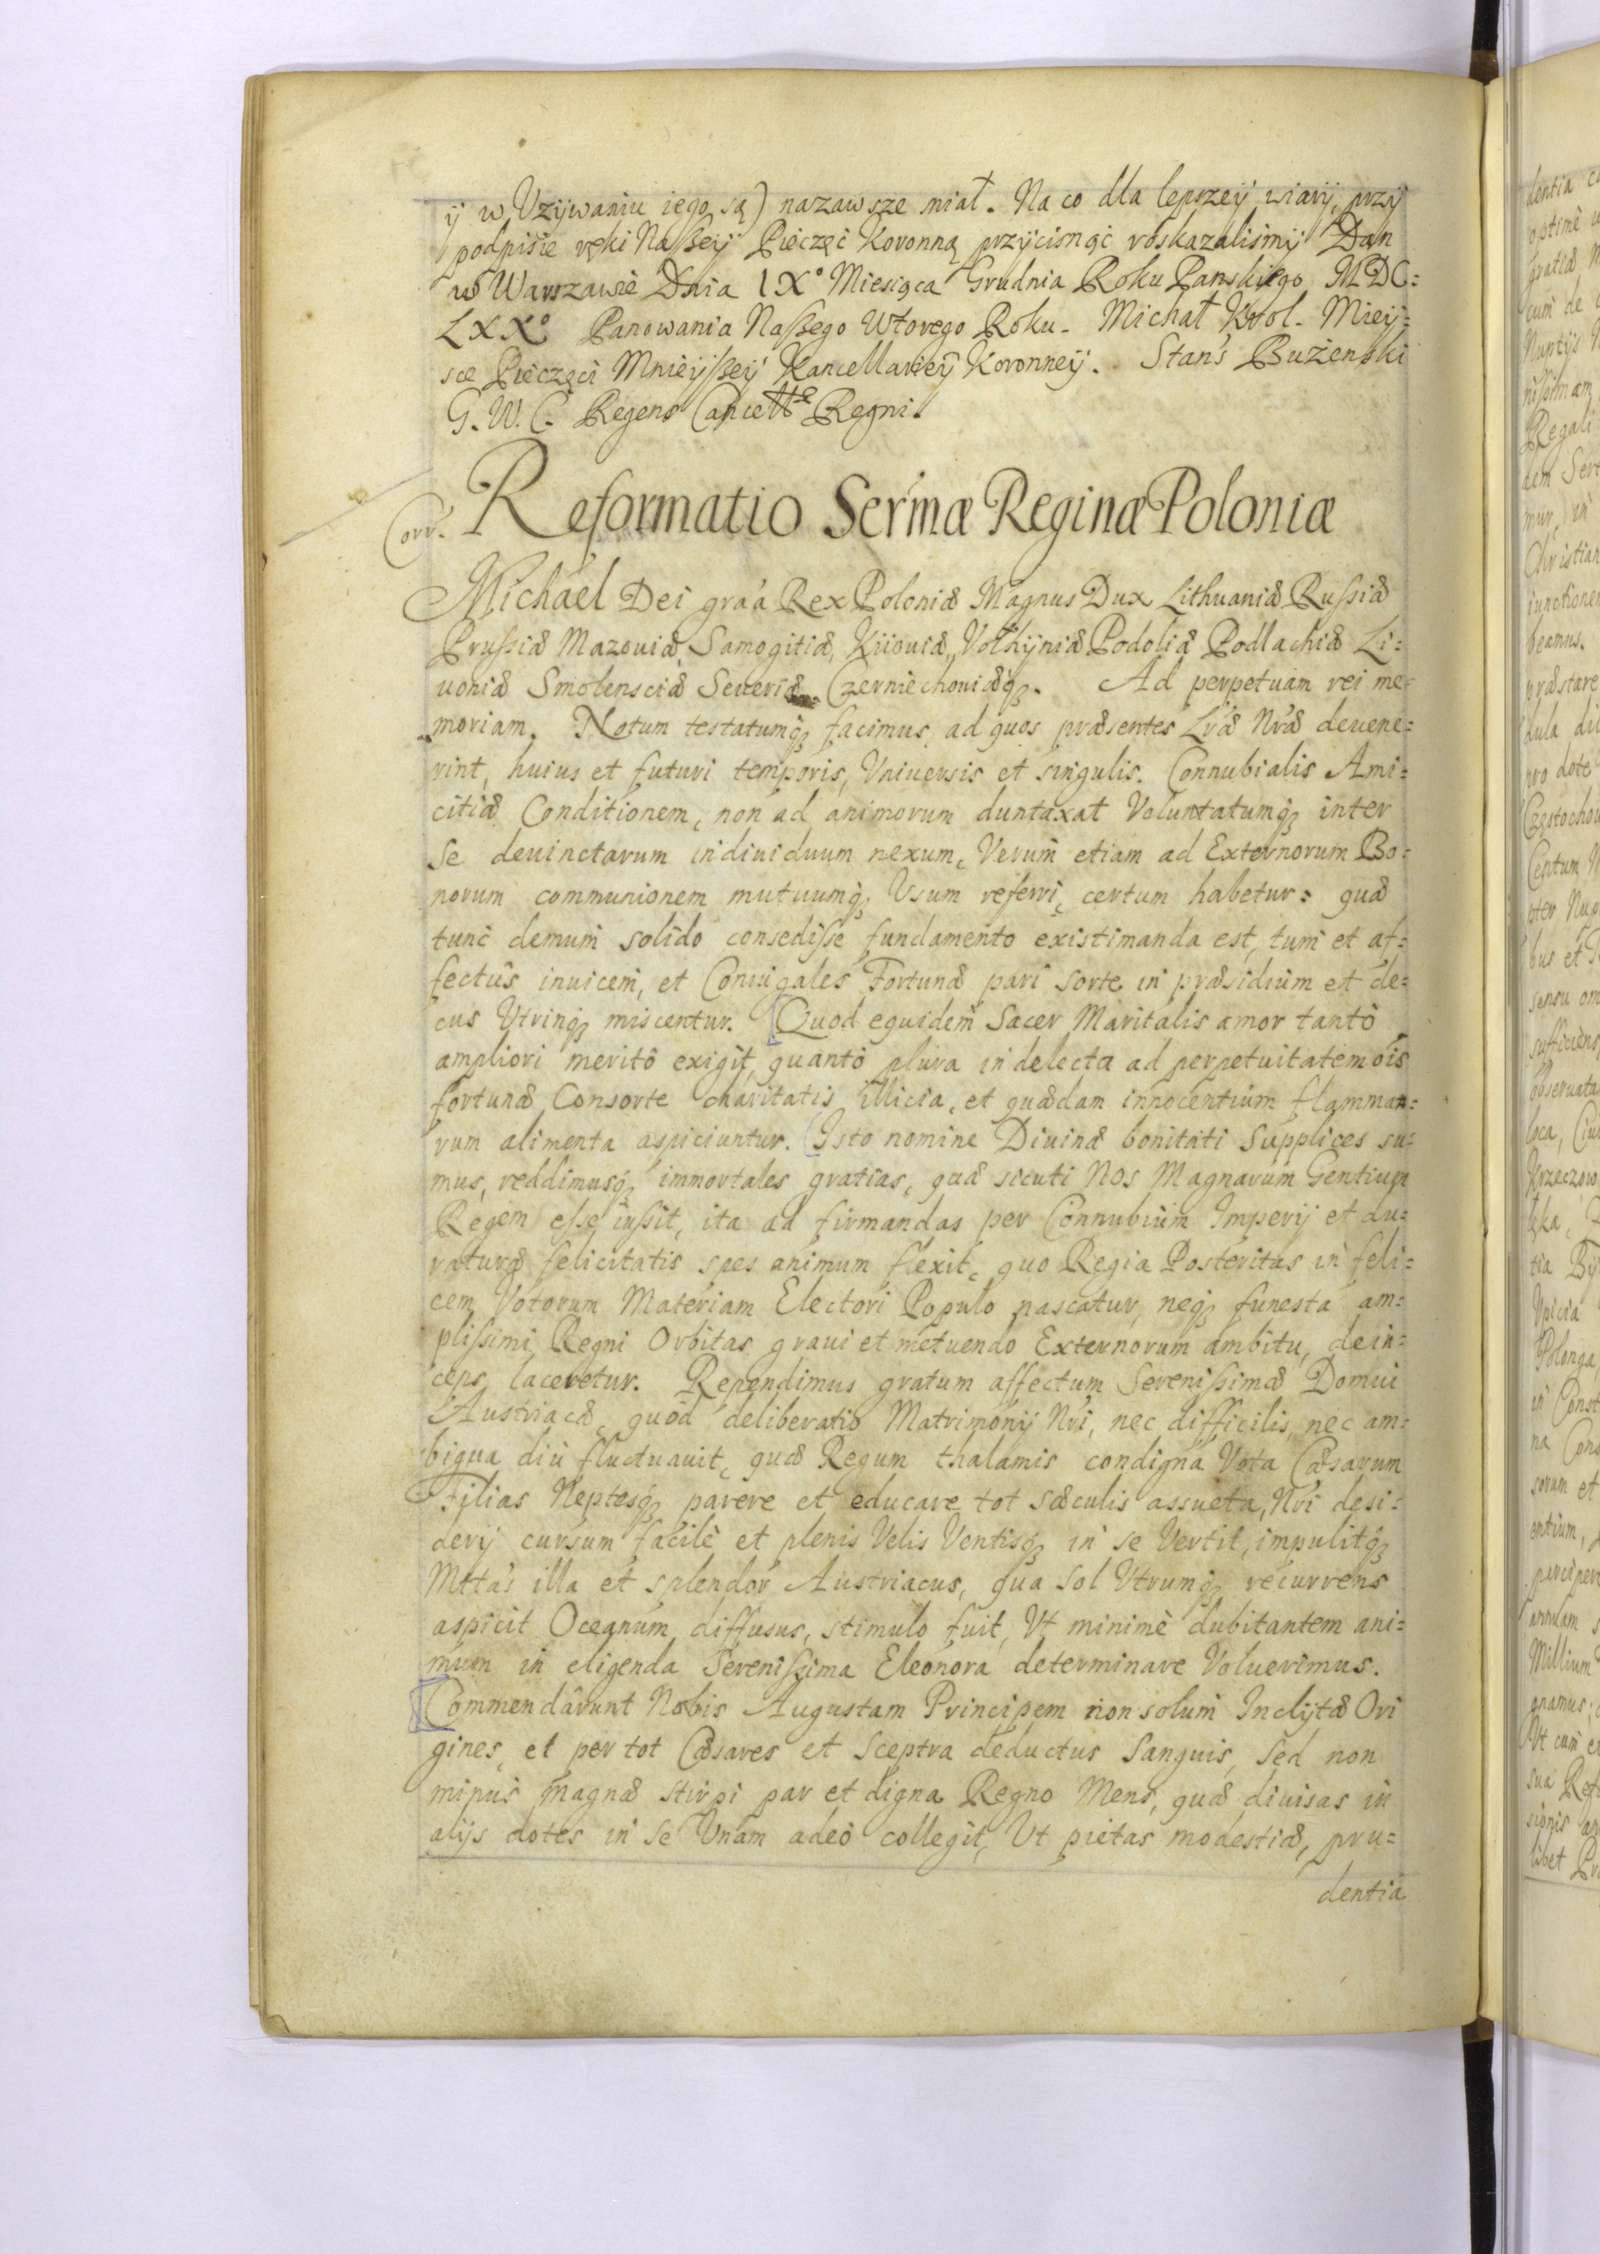 ÿ w Użÿwaniu iego są) nazawsze miał. Na co dla lepszeÿ wiarÿ, przÿ
podpisie ręki Naßeÿ Pieczęć Koronną przÿcisnąć roskazaliśmÿ Dan
w Warszawie Dnia IX° Miesiąca Grudnia Roku Panskiego MDC=
LXX° Panowania Naßego Wtorego Roku. Michał Krol. Mieÿ=
sce Pieczęci Mnieÿßeÿ Kancellarieÿ Koronneÿ. Stan's Bużenski
G. W. C. Regens Cancellae Regni.
Corr. Reformatio Ser'mæ Reginæ Poloniæ
Michael Dei gra'a Rex Poloniæ Magnus Dux Lithuaniæ Russiæ
Prussiæ Mazouiæ, Samogitiæ, Kiiouiæ, Volhÿniæ Podoliæ Podlachiæ Li=
uoniæ Smolensciæ Seueriæ Czerniechouiæq3. Ad perpetuam rei me=
moriam. Notum testatumq3 facimus, ad quos præsentes Lr'æ Nr'æ deuene=
rint, huius et futuri temporis, Vniuersis et singulis. Connubialis Ami=
citiæ Conditionem, non ad animorum duntaxat Voluntatumq3 inter
se deuinctarum indiuiduum nexum, Verum etiam ad Externorum Bo=
norum communionem mutuumq3 Vsum referri, certum habetur: quæ
tunc demum solido consedisse fundamento existimanda est, tum et af=
fectûs inuicem, et Coniugales Fortunæ pari sorte in præsidium et de=
cus Vtrinq3 miscentur. Quod equidem Sacer Maritalis amor tantò
ampliori meritò exigit, quantò plura in delecta ad perpetuitatem ois
fortunæ Consorte charitatis illicia, et quædam innocentium flamma=
rum alimenta aspiciuntur. Isto nomine Diuinæ bonitati Supplices su=
mus, reddimusq3 immortales gratias, quæ sicuti Nos Magnarum Gentium
Regem esse iussit, ita ad firmandas per Connubium Imperij et du=
raturæ felicitatis spes animum flexit, quo Regia Posteritas in feli=
cem Votorum Materiam Electori Populo nascatur, neq3 funesta am=
plissimi Regni Orbitas graui et metuendo Externorum ambitu, dein=
ceps laceretur. Rependimus gratum affectum Serenissimæ Domui
Austriacæ, quòd deliberatio Matrimonij Nri, nec difficilis, nec am=
bigua diù fluctuauit, quæ Regum thalamis condigna Vota Cæsarum
Filias Neptesq3 parere et educare tot sæculis assueta, Nri desi=
derij cursum facilè et plenis Velis Ventisq3 in se Vertit, impulitq3
Mtta's illa et splendor Austriacus, qua Sol Vtrumq3 recurrens
aspicit Oceanum, diffusus, stimulo fuit, Vt minimè dubitantem ani=
mum in eligenda Serenissima Eleonora determinare Voluerimus.
Commendârunt Nobis Augustam Principem non solum Inclÿtæ Ori
gines, et per tot Cæsares et Sceptra deductus Sanguis, Sed non
minus magnæ stirpi par et digna Regno Mens, quæ diuisas in
alijs dotes in se Vnam adeò collegit, Vt pietas modestiæ, pru=
dentia